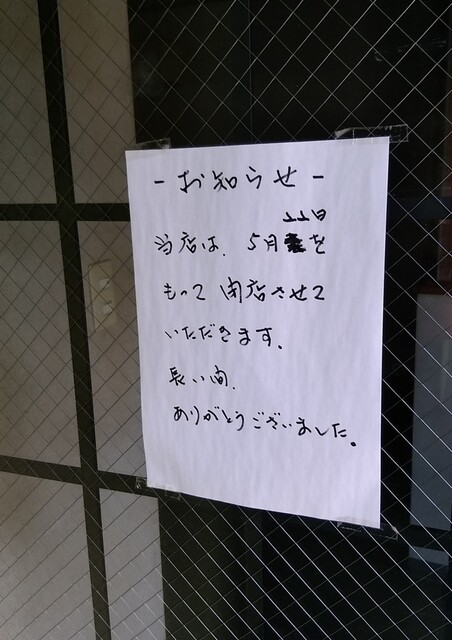 -お知らせ-
22日
当店は、5月をもって閉店させて
いただきます。
長い間、
ありがとうございました。